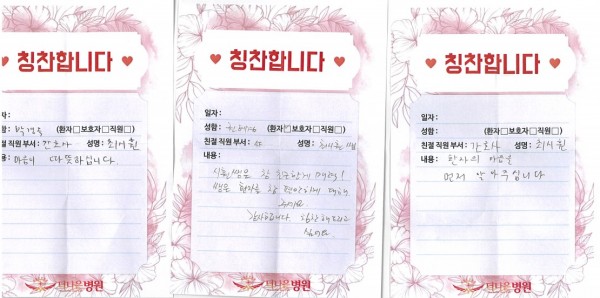 칭찬합니다
자:
함: 박경옥 (환자□보호자□직원□)
친절 직원 부서: 간호사 성명: 최시원
내용: 마음이 따뜻하십니다
더나은병원
칭찬합니다
일자:
성함: (환자☑보호자□직원□)
친절 직원 부서: 성명: 최시원
내용:
시원쌤은 참 친절하게 해줘요!
쌤은 환자를 참 편안하게 대해
줘요
감사합니다 칭찬해드리고
싶어요
더나은병원
칭찬합니다
일자:
성함: (환자□보호자□직원□)
친절 직원 부서: 간호사 성명: 최시원
내용: 환자의 마음을
먼저 알아주십니다
더나은병원